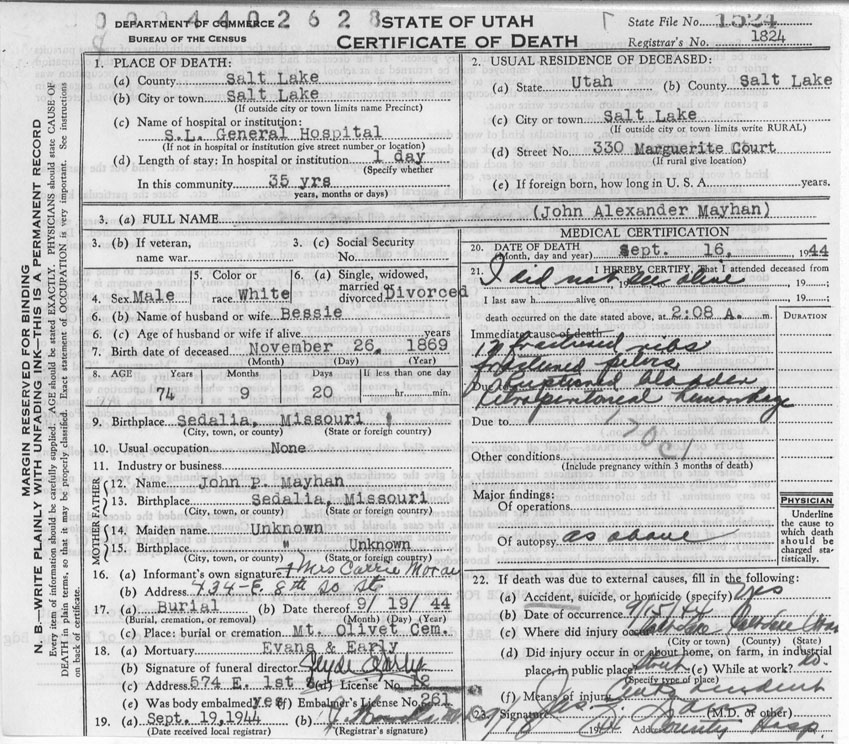 0004402628
DEPARTMENT OF COMMERCE
BUREAU OF THE CENSUS
STATE OF UTAH
CERTIFICATE OF DEATH
State File No. 1524
Registrar's No. 1824
MARGIN RESERVED FOR BINDING
N. B.—WRITE PLAINLY WITH UNFADING INK—THIS IS A PERMANENT RECORD
Every item of information should be carefully supplied. AGE should be stated EXACTLY. PHYSICIANS should state CAUSE OF
DEATH in plain terms, so that it may be properly classified. Exact statement of OCCUPATION is very important. See instructions
back of certificate.
1. PLACE OF DEATH:
(a) County Salt Lake
(b) City or town Salt Lake
(If outside city or town limits name Precinct)
(c) Name of hospital or institution:
S.L. General Hospital
(If not in hospital or institution give street number or location)
(d) Length of stay: In hospital or institution 1 day
(Specify whether
In this community 35 yrs
years, months or days)
2. USUAL RESIDENCE OF DECEASED:
(a) State Utah (b) County Salt Lake
(c) City or town Salt Lake
(If outside city or town limits write RURAL)
(d) Street No. 330 Marguerite Court
(If rural give location)
(e) If foreign born, how long in U. S. A. years.
3. (a) FULL NAME (John Alexander Mayhan)
3. (b) If veteran, name war
3. (c) Social Security No.
4. Sex Male
5. Color or race White
6. (a) Single, widowed, married or divorced Divorced
6. (b) Name of husband or wife Bessie
6. (c) Age of husband or wife if alive years
7. Birth date of deceased November 26, 1869
(Month) (Day) (Year)
8. AGE Years Months Days If less than one day
74 9 20 hr. min.
9. Birthplace Sedalia, Missouri
(City, town, or county) (State or foreign country)
10. Usual occupation None
11. Industry or business
FATHER
12. Name John P. Mayhan
13. Birthplace Sedalia, Missouri
(City, town, or county) (State or foreign country)
MOTHER
14. Maiden name Unknown
15. Birthplace Unknown
(City, town, or county) (State or foreign country)
16. (a) Informant's own signature Mrs Carrie
(b) Address 434 - E. 8th So St
17. (a) Burial (b) Date thereof 9/ 19/ 44
(Burial, cremation, or removal) (Month) (Day) (Year)
(c) Place: burial or cremation Mt. Olivet Cem.
18. (a) Mortuary Evans & Early
(b) Signature of funeral director Clyde Early
(c) Address 574 E. 1st S (d) License No. 12
(e) Was body embalmed? yes (f) Embalmer's License No. 261
19. (a) Sept. 19, 1944 (b)
(Date received local registrar) (Registrar's signature)
MEDICAL CERTIFICATION
20. DATE OF DEATH
(Month, day and year) Sept. 16, 1944
21. I HEREBY CERTIFY, That I attended deceased from
I did not see alive 19 ;
I last saw h alive on 19 ;
death occurred on the date stated above, at 2:08 A. m.
DURATION
Immediate cause of death
fractured ribs
fractured pelvis
Due to ruptured bladder
retroperitoneal hemorrhage
Due to
170c1
Other conditions
(Include pregnancy within 3 months of death)
Major findings:
Of operations
Of autopsy as above
PHYSICIAN
Underline
the cause to
which death
should be
charged sta-
tistically.
22. If death was due to external causes, fill in the following:
(a) Accident, suicide, or homicide (specify) yes
(b) Date of occurrence 9/15/44
(c) Where did injury occur
(City or town) (County) (State)
(d) Did injury occur in or about home, on farm, in industrial
place, in public place? street (e) While at work? no
(Specify type of place)
(f) Means of injury auto accident
23. Signature (M.D. or other)
Address County Hosp.